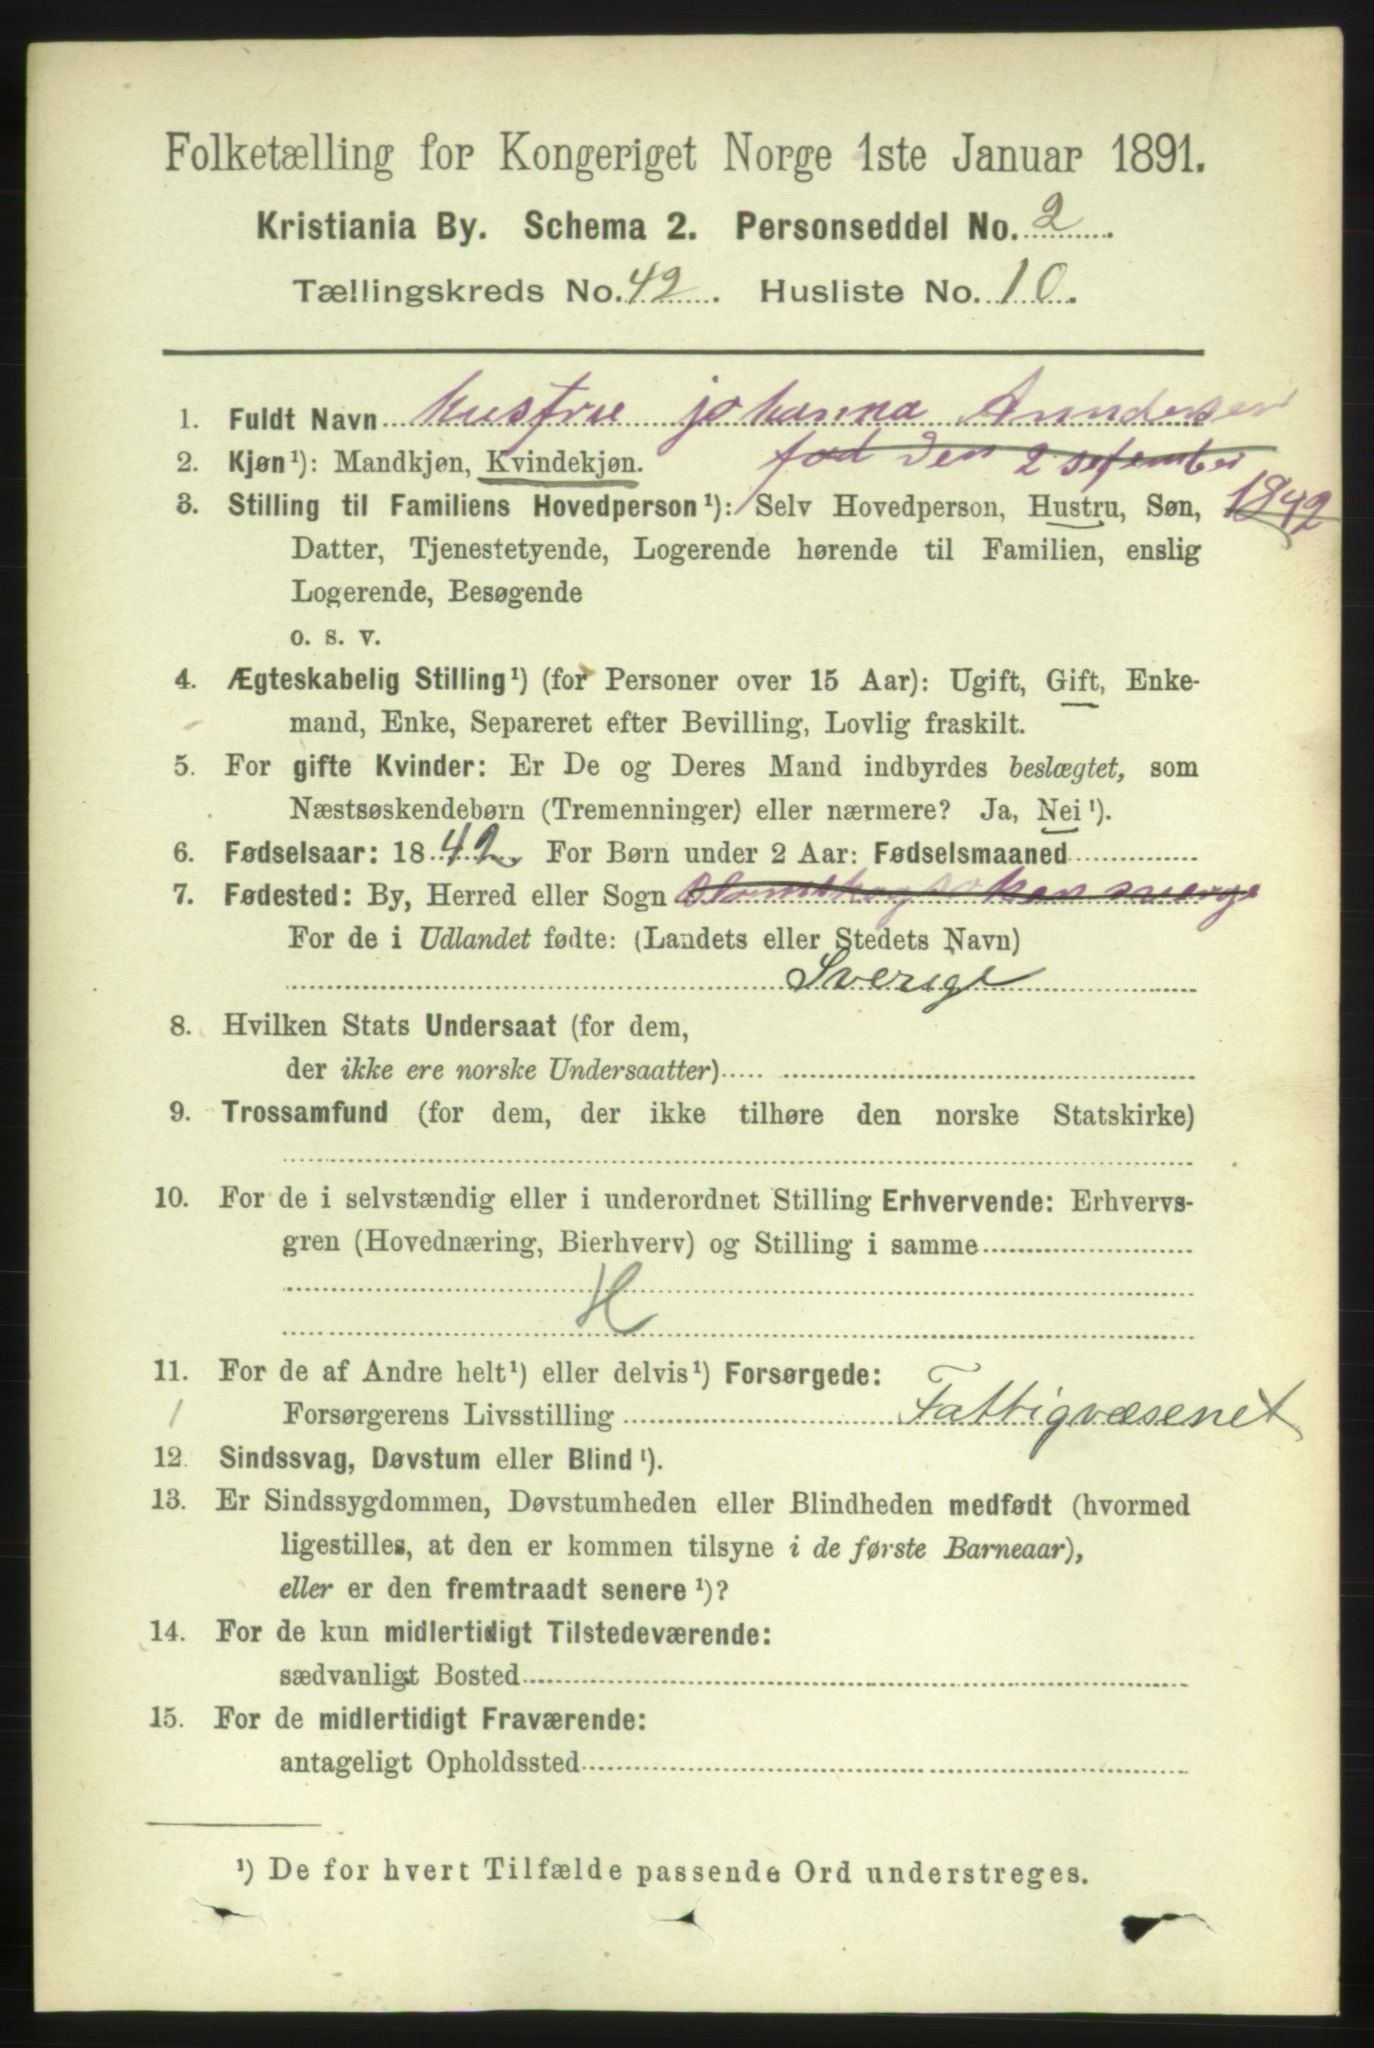 Folketælling for Kongeriget Norge 1ste Januar 1891.
Kristiania By. Schema 2. Personseddel No. 2.
Tællingskreds No. 42. Husliste No. 10.
1. Fuldt Navn hustrue johanna Anndersen
2. Kjøn¹): Mandkjøn, Kvindekjøn. fød den 2 september
3. Stilling til Familiens Hovedperson¹): Selv Hovedperson, Hustru, Søn, 1842
Datter, Tjenestetyende, Logerende hørende til Familien, enslig
Logerende, Besøgende
o. s. v.
4. Ægteskabelig Stilling¹) (for Personer over 15 Aar): Ugift, Gift, Enke-
mand, Enke, Separeret efter Bevilling, Lovlig fraskilt.
5. For gifte Kvinder: Er De og Deres Mand indbyrdes beslægtet, som
Næstsøskendebørn (Tremenninger) eller nærmere? Ja, Nei¹).
6. Fødselsaar: 1842. For Børn under 2 Aar: Fødselsmaaned
7. Fødested: By, Herred eller Sogn
For de i Udlandet fødte: (Landets eller Stedets Navn)
Sverige
8. Hvilken Stats Undersaat (for dem,
der ikke ere norske Undersaatter)
9. Trossamfund (for dem, der ikke tilhøre den norske Statskirke)
10. For de i selvstændig eller i underordnet Stilling Erhvervende: Erhvervs-
gren (Hovednæring, Bierhverv) og Stilling i samme
H
11. For de af Andre helt¹) eller delvis¹) Forsørgede:
Forsørgerens Livsstilling Fattigvæsenet
12. Sindssvag, Døvstum eller Blind¹).
13. Er Sindssygdommen, Døvstumheden eller Blindheden medfødt (hvormed
ligestilles, at den er kommen tilsyne i de første Barneaar),
eller er den fremtraadt senere¹)?
14. For de kun midlertidigt Tilstedeværende:
sædvanligt Bosted
15. For de midlertidigt Fraværende:
antageligt Opholdssted
¹) De for hvert Tilfælde passende Ord understreges.